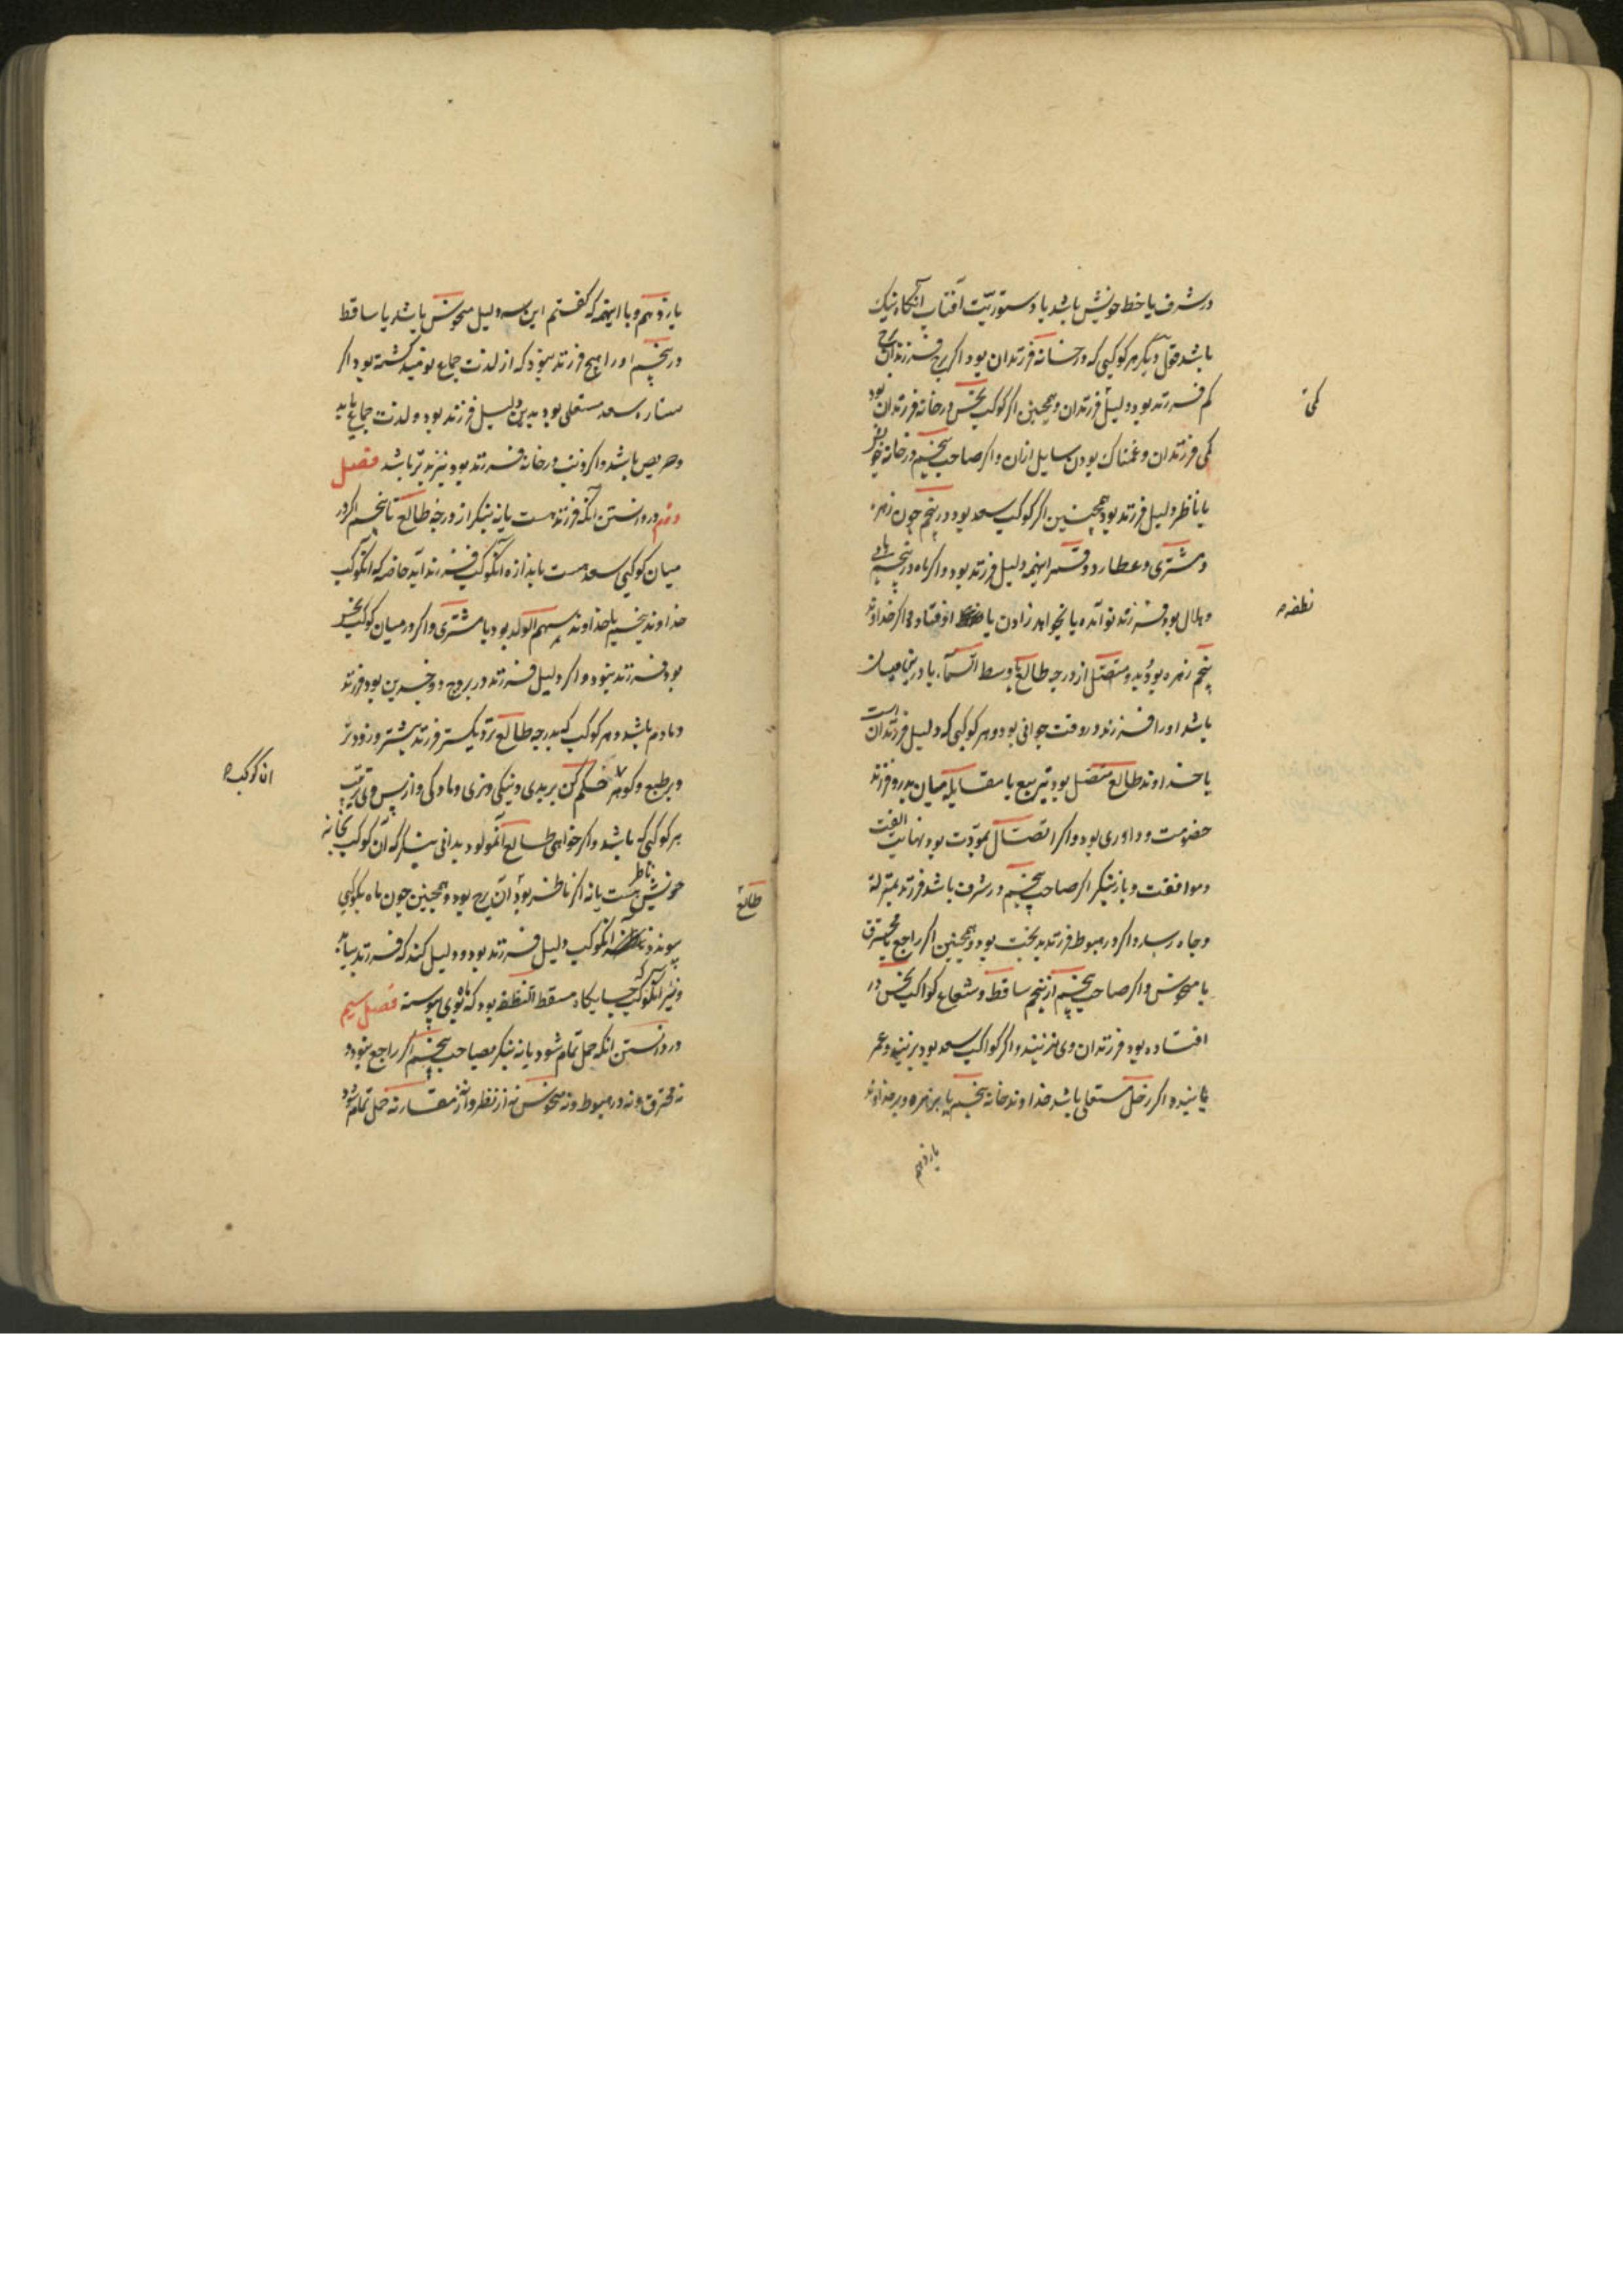 در شرف یا خط خویش باشد یا دستوریّت آفتاب آنگاه نیک
باشد قول دیگر هر کوکبی که در خانه فرزندان بود اگر برج فرزندان
کم فرزند بود دلیل فرزندان و همچنین اگر کوکب نحس در خانه فرزندان بود
کمی فرزندان و غمناک بودن سایل ازان و اگر صاحب پنجم در خانه خویش
یا ناظر دلیل فرزند بود همچنین اگر کوکب سعد بود در پنجم چون زهره
و مشتری و عطارد و قمر اینهمه دلیل فرزند بود و اگر ماه در پنجم
و هلال بود فرزند نو آمده یا بخواهد زادن یا افتاد و اگر خداوند
پنجم زهره بود و متصل از درجه طالع تا وسط السّماء یا درین میان
باشد او را فرزند در وقت جوانی بود و هر کوکبی که دلیل فرزندان است
با خداوند طالع متصل بود تربیع یا مقابله میان پدر و فرزند
خصومت و داوری بود و اگر اتّصال مودّت بود نهایت الفت
و موافقت و باز بنگر اگر صاحب پنجم در شرف باشد فرزند بمنزلة
و جاه رسد و اگر در هبوط فرزند بدبخت بود و همچنین اگر راجع یا محترق
یا منحوس و اگر صاحب پنجم از پنجم ساقط و شعاع کواکب نحس در
افتاده بود فرزندان وی نزیند و اگر کواکب سعد بود بزیند و عمر
یابند و اگر زحل مستعلی باشد خداوند خانه پنجم یا بر زهره و بر خداوند
یازدهم
کمی
نطفه
یازدهم و با اینهمه که گفتم این سه دلیل منحوس باشد یا ساقط
در پنجم او را هیچ فرزند نبود که از لذت جماع نومید گشته بود اگر
ستاره سعد مستعلی بود بدین دلیل فرزند بود و لذت جماع یابد
و حریص باشد و اگر ذنب در خانه فرزند بود نیز بدتر باشد فصل
دوم در دانستن آنکه فرزند هست یا نه بنگر از درجه طالع تا پنجم اگر در
میان کوکبی سعد هست باندازه آن کوکب فرزند آید خاصه که آن کوکب
خداوند پنجم یا خداوند سهم الولد بود یا مشتری و اگر در میان کوکب نحس
بود فرزند نبود و اگر دلیل فرزند در بروج دو جسدین بود فرزند
دمادم باشد و هر کوکب که بدرجه طالع نزدیکتر فرزند بیشتر و زودتر
و بر طبع و گوهر حکم کن بر بدی و نیکی و نری و مادگی و از پس وی ترتیب
هر کوکبی که باشد و اگر خواهی طالع آن مولود بدانی بنگر که آن کوکب بخانه
خویش ناظر هست یا نه اگر ناظر بود آن برج بود و همچنین چون ماه بکوکبی
پیوندد آن کوکب دلیل فرزند بود و دلیل کند که فرزند بیاید
و نیز بنگر که آن کوکب جایگاه مسقط النطفه بود که ماه بوی پیوسته فصل سیم
در دانستن آنکه حمل تمام شود یا نه بنگر بصاحب پنجم اگر راجع نبود و
نه محترق و نه در هبوط و نه منحوس نه از نظر و نه از مقارنه حمل تمام شود
آن کوکب
طالع